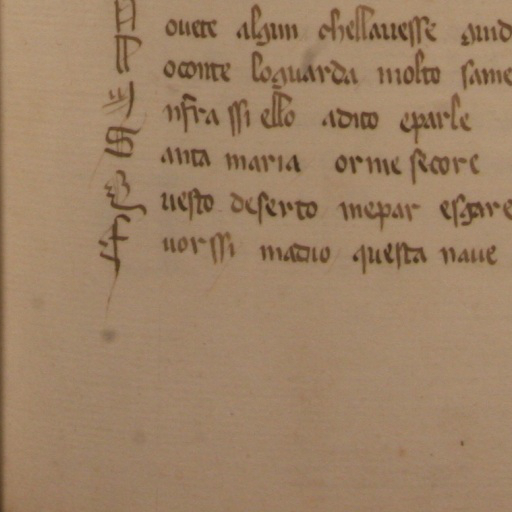 Pouete alghun chellauesse guid
Poconte loguarda molto same
Infra ssi ello adito eparle
Santa maria or me secore
Questo deserto mepar esgare
Fuorssi madio questa naue